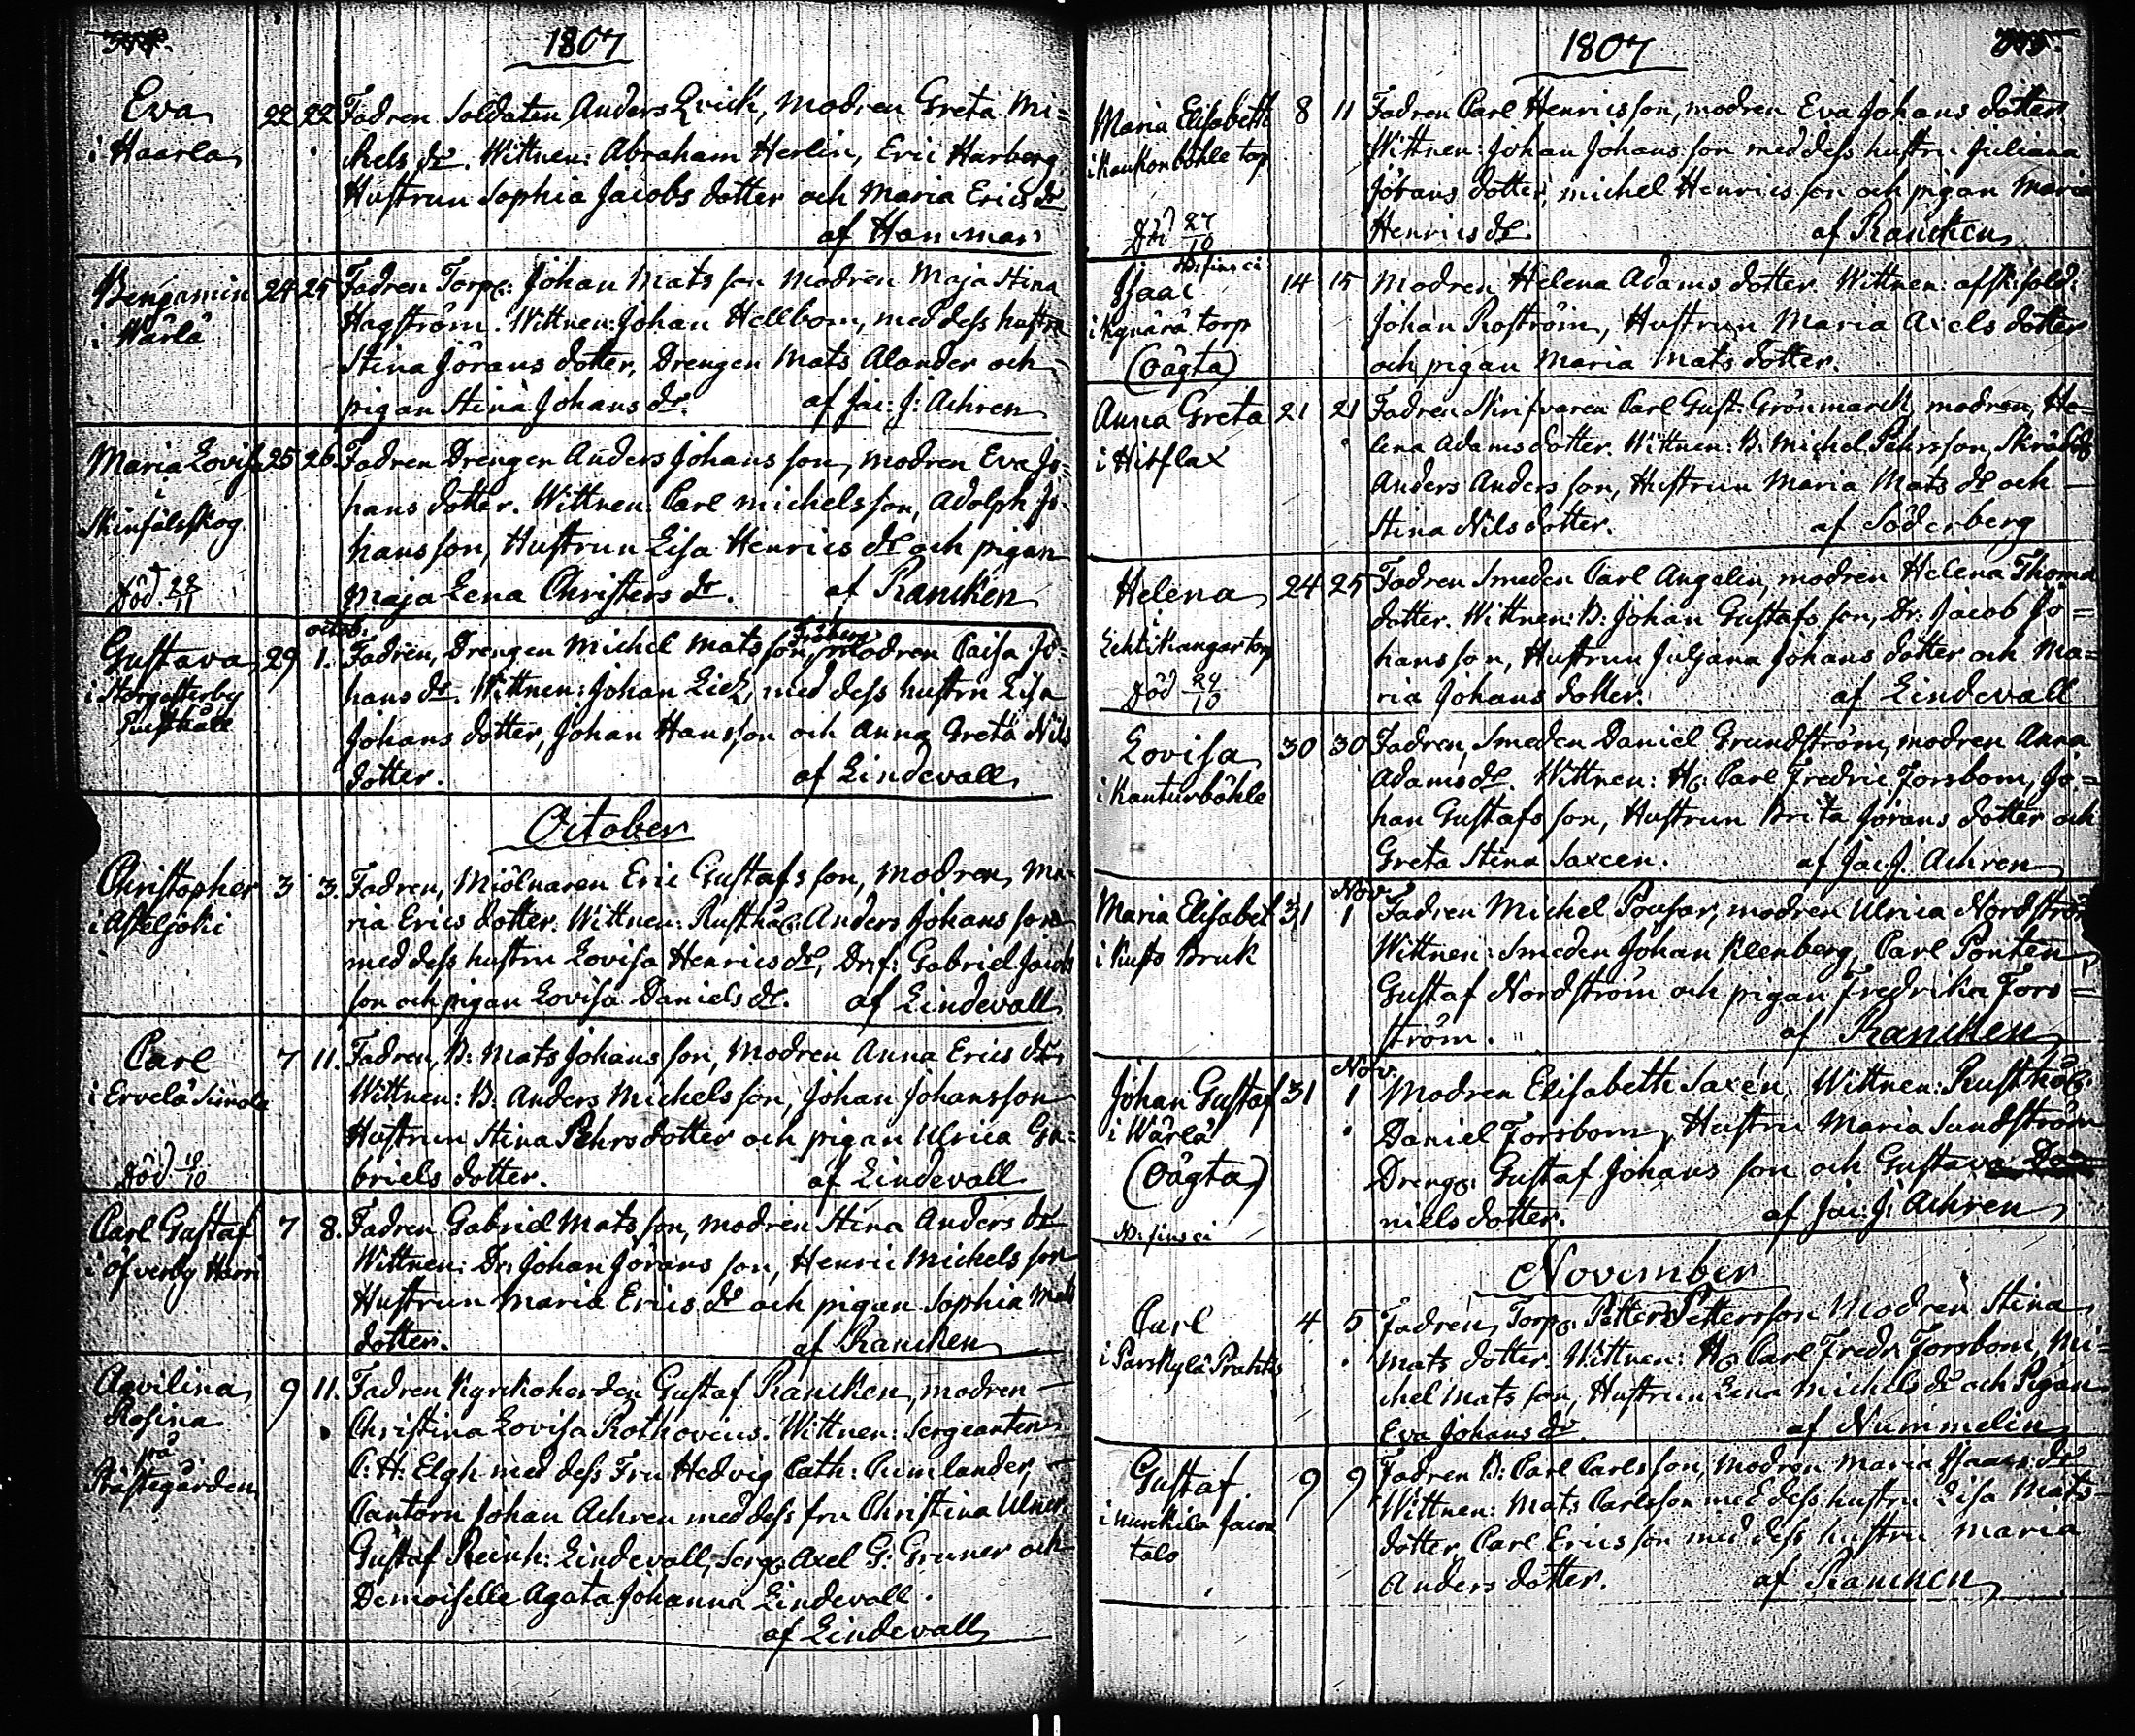 1807
Eva 22 22 Fadren Soldaten Anders Qvick, Modren Greta Mi=
i Haarla chels dr. Wittnen: Abraham Herlin, Eric Harberg
Hustrun Sophia Jacobs dotter och Maria Erics dr
af Hammar
Benjamin 24 25 Fadren Torp: Johan Mats son Modren Maja Stina
i Wärlä Hagström. Wittnen: Johan Hellbom, med dess hustru
Stina Jörans dotter, Drengen Mats Alander och
pigan Stina Johans dr. af Jac: J: Achren
Maria Lovisa 25 26. Fadren Drengen Anders Johans son, modren Eva Jo=
i hans dotter. Wittnen: Carl Michelsson, Adolph Jo=
Skinfälsskog hansson, Hustrun Lisa Henrics dr och pigan
Död 22/11 Maja Lena Christers dr. af Rancken
octob: Fröberg
Gustava 29 1. Fadren, Drengen Michel Mats son, modren Caisa Jo=
i Norgotterby hans dr. Wittnen: Johan Liez, med dess hustru Lisa
Rusthåll Johans dotter, Johan Hansson och Anna Greta Nils
dotter. af Lindevall
October
Christopher 3 3. Fadren, Miölnaren Eric Gustafs son, Modren, Ma=
i Asteljoki ria Erics dotter. Wittnen: Rusthåll: Anders Johans son
med dess hustru Lovisa Henrics dr, Dr: Gabriel Jacobs
son och pigan Lovisa Daniels dr. af Lindevall
Carl 7 11. Fadren, B: Mats Johans son, Modren Anna Erics dr,
i Ervelä Simola Wittnen: B: Anders Michels son, Johan Johansson
Hustrun Stina Pehrs dotter och pigan Ulrica Ga=
Död 19/10 briels dotter. af Lindevall
Carl Gustaf 7 8. Fadren Gabriel Mats son, modren Stina Anders dr
i Öfverby Harri Wittnen: Dr: Johan Jörans son, Henric Michels son
Hustrun Maria Erics dr och pigan Sophia Mats
dotter. af Rancken
Aqvilina 9 11. Fadren Kyrckoherden Gustaf Rancken, modren
Rosina Christina Lovisa Rothovius. Wittnen: Sergeanten
på C: H: Elgh med dess Fru Hedvig Cath: Cumlander,
Prästegården Cantorn Johan Achren med dess fru Christina Ulner
Gustaf Reinh: Lindevall, Serg: Axel G: Gruner och
Demoiselle Agata Johanna Lindevall.
af Lindevall
1807
Maria Elisabeth 8 11 Fadren Carl Henricsson, modren Eva Johans dotter
i Kaukonböhle torp Wittnen: Johan Johans son med dess hustru Juliana
Jörans dotter, Michel Henrics son och pigan Maria
Död 27/10 Henrics dr. af Rancken
NB: fins ei
Isaac 14 15 Modren Helena Adams dotter. Wittnen: afsk: sold:
i torp Johan Roström, Hustrun Maria Axels dotter
(Oägta) och pigan Maria Mats dotter.
Anna Greta 21 21 Fadren Carl Gust: Grönmarck, modren, He=
i Hirflax lena Adams dotter. Wittnen: B: Michel Pehrsson, Skrädd:
Anders Anders son, Hustrun Maria Mats dr och
Stina Nils dotter. af Söderberg
Helena 24 25 Fadren Smeden Carl Angelin, modren Helena Thoma
i dotter. Wittnen: B: Johan Gustafs son, Dr: Jacob Jo=
Lehtikangar torp hansson, Hustrun Juliana Johans dotter och Ma=
Död 29/10 ria Johans dotter. af Lindevall
Lovisa 30 30 Fadren, Smeden Daniel Grundström, modren Anna
i Kanturböhle Adams dr. Wittnen: H: Carl Fredric Forsbom, Jo=
han Gustafs son, Hustrun Brita Jörans dotter och
Greta Stina Saxeen. af Jac: J: Achren
Nov:
Maria Elisabet 31 1 Fadren Michel Pousar, modren Ulrica Nordström
i Kusto Bruk Wittnen: Smeden Johan Klenberg, Carl Ponten,
Gustaf Nordström och pigan Fredrika Fors=
ström. af Rancken
Nov.
Johan Gustaf 31 1 Modren Elisabeth Saxén, Wittnen: Rusthåll:
i Wärlä Daniel Forsbom, Hustru Maria Sundström
(Oägta) Dreng: Gustaf Johans son och Gustava Da=
niels dotter. af Jac: J: Achren
NB: fins ei
November
Carl 4 5 Fadren, Torp: Petter Pettersson Modren Stina
i Parskylä Prakti Mats dotter. Wittnen: H: Carl Fredr: Forsbom, Mi=
chel Mats son, Hustrun Lena Michels dr och Pigan
Eva Johans dr. af Nummelin
Gustaf 9 9 Fadren B: Carl Carlsson, modren Maria Isaacs dr
i Nurckila Jacos Wittnen: Mats Carlsson med dess hustru Lisa Mats
talo dotter, Carl Ericsson med dess hustru Maria
Anders dotter. af Rancken